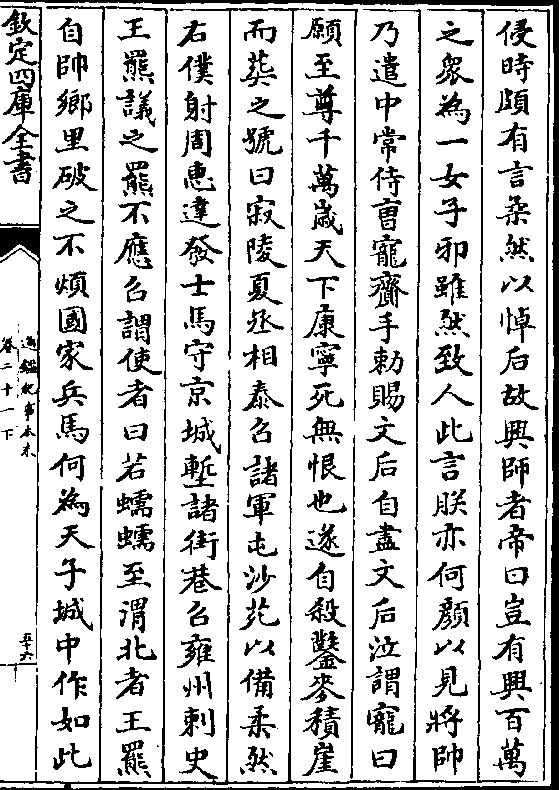 侵時頗有言柔然以悼后故興師者帝曰豈有興百萬
之衆為一女子邪雖然致人此言朕亦何顔以見將帥
乃遣中常侍曹寵齎手勅賜文后自盡文后泣謂寵曰
願至尊千萬歳天下康寧死無恨也遂自殺鑿麥積崖
而葬之號曰寂陵夏丞相泰召諸軍屯沙苑以備柔然
右僕射周惠達發士馬守京城塹諸街巷召雍州刺史
王羆議之羆不應召謂使者曰若蠕蠕至渭北者王羆
自帥鄉里破之不煩國家兵馬何為天子城中作如此
欽定四庫全書
通鑑紀事本末
卷二十一下
五十六